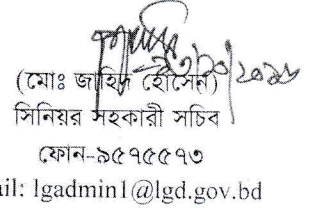 (মোঃ জাহিদ হোসেন)
সিনিয়র সহকারী সচিব
ফোন-৯৫৭৫৫৭৩
ail: lgadmin1@lgd.gov.bd